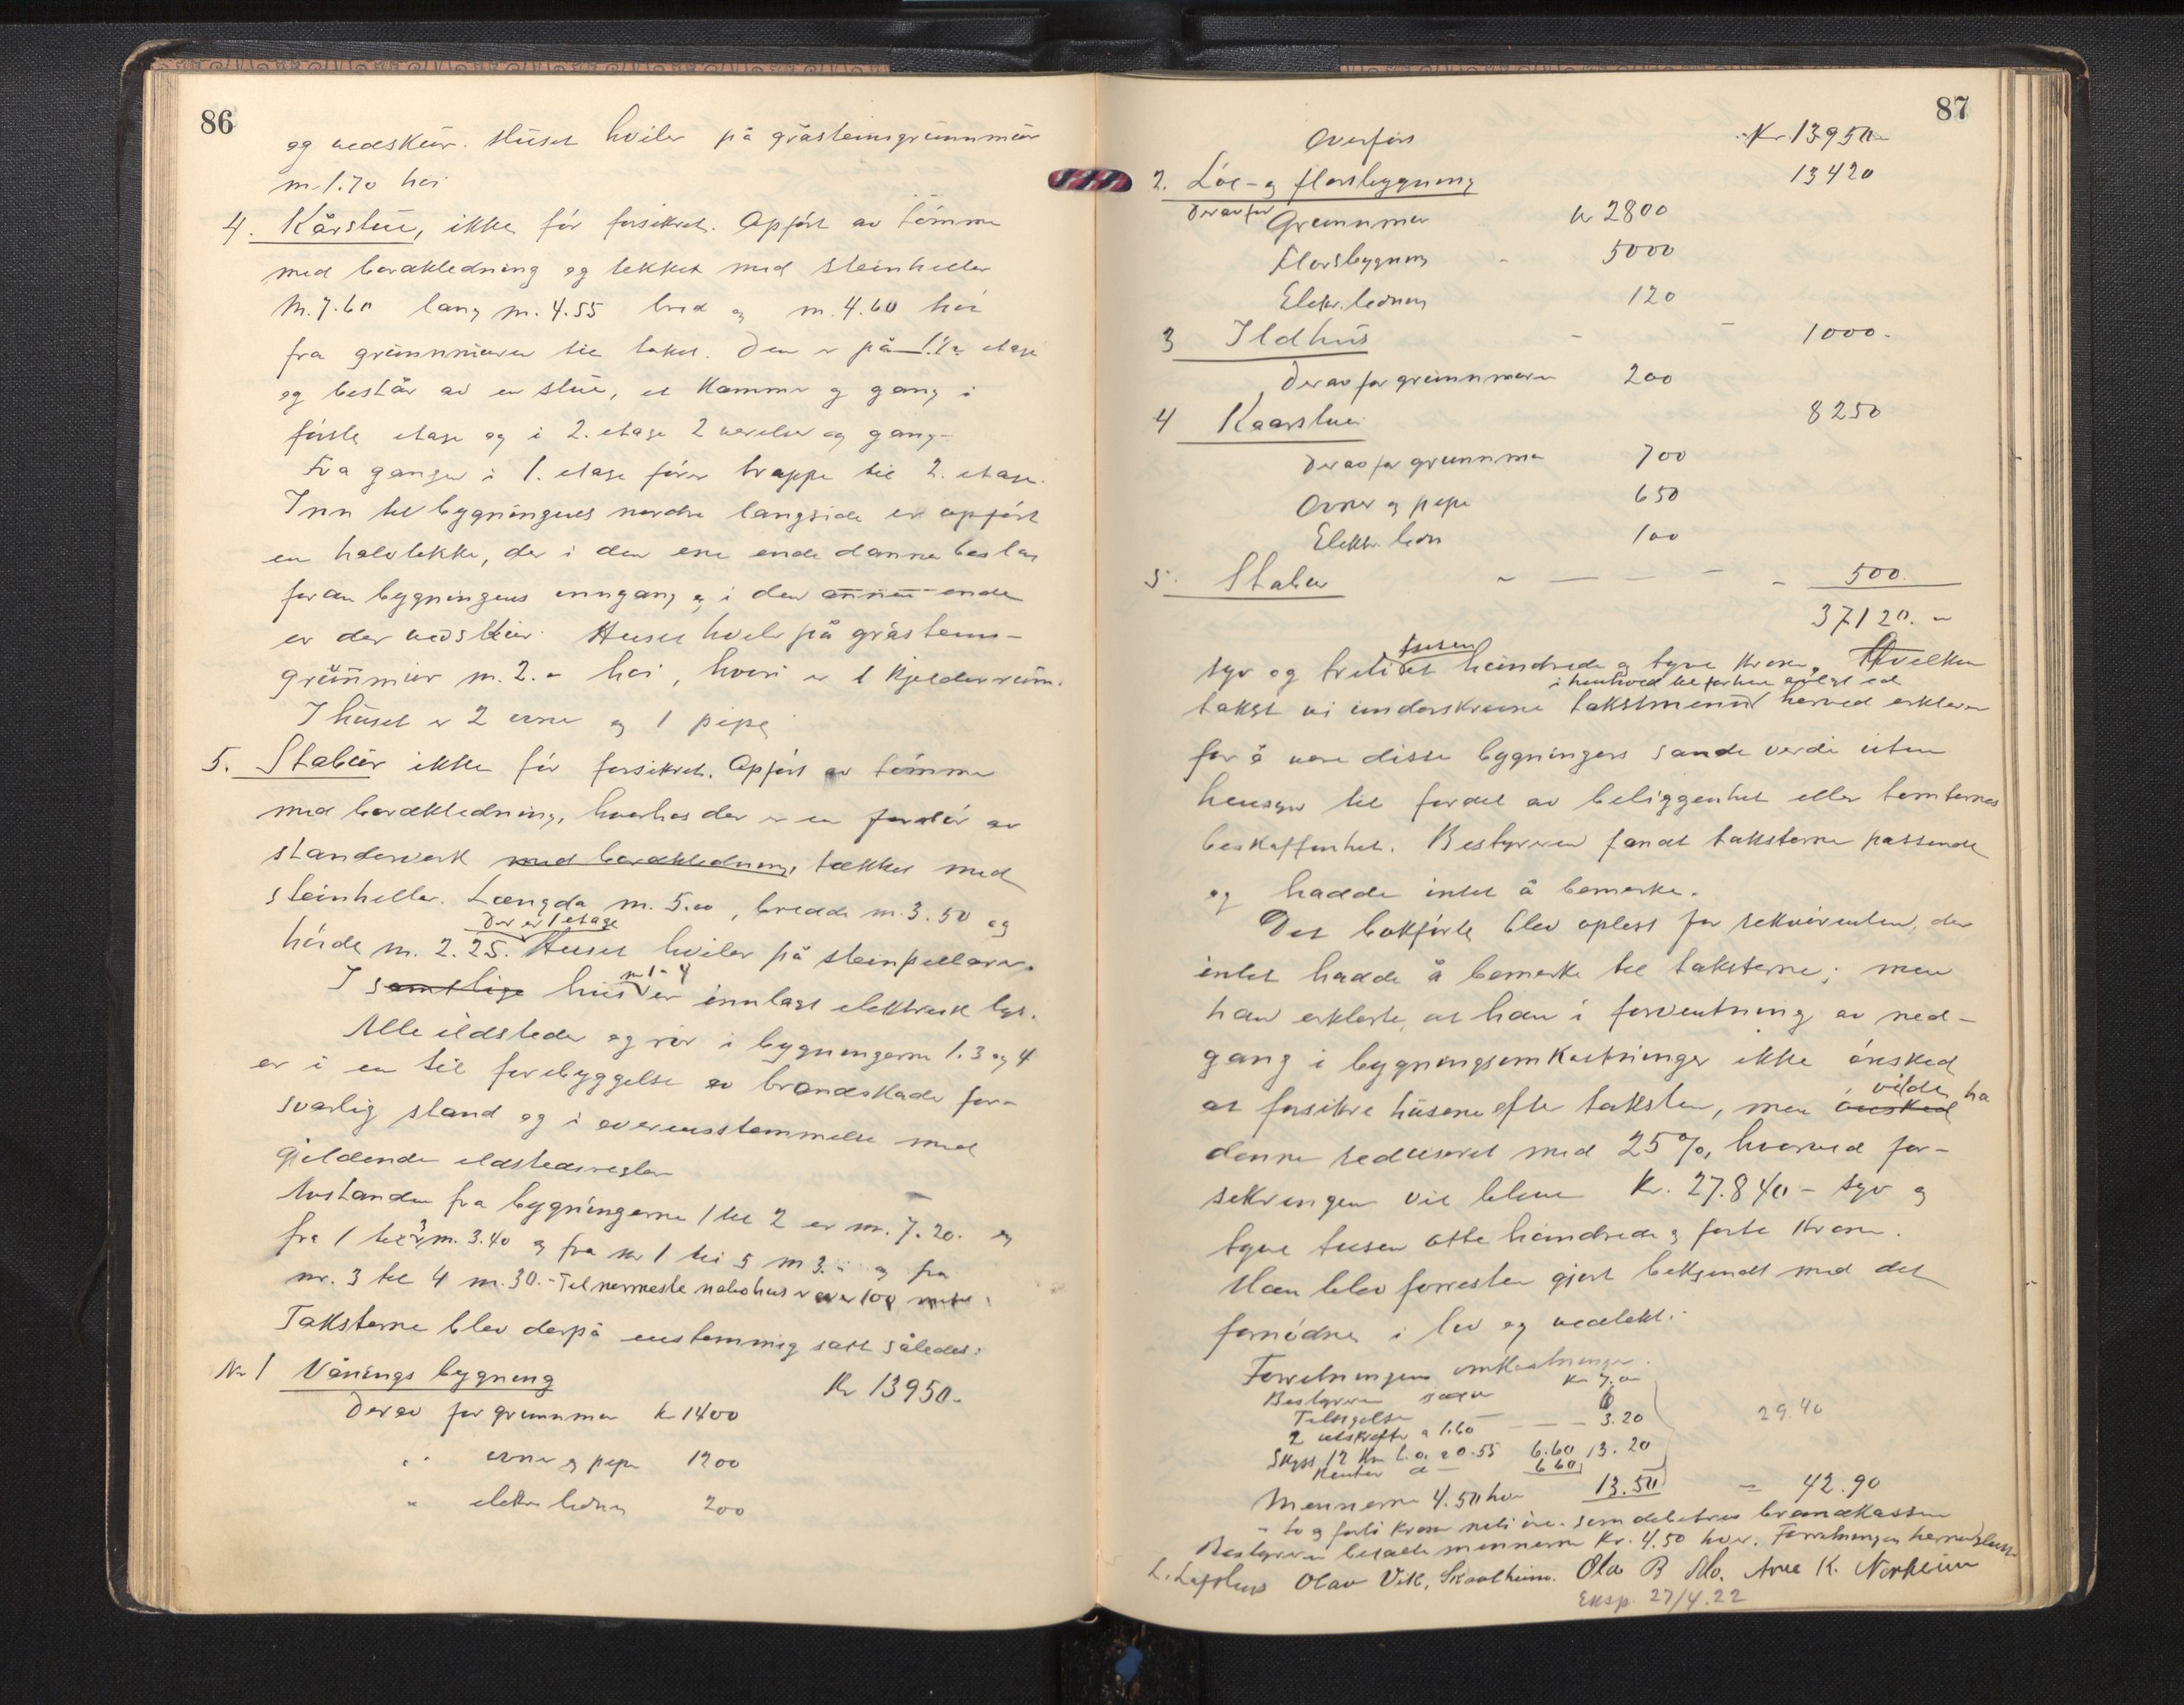 86
og vedskur. Huset hviler på gråsteinsgrunnmur
m. 1.70 høi
4. Kårstue, ikke før forsikret. Opført av tømmer
med bordkledning og tekket med steinheller
M. 7.60 lang m. 4.55 bred og m. 4.60 høi
fra grunnmuren til taket. Den er på 1½ etage
og består av en stue, et kammer og gang i
første etage og i 2. etage 2 værelser og gang.
Fra gangen i 1. etage fører trappe til 2. etage.
Inn til bygningens nordre langside er opført
en halvtekke, der i den ene ende danner beslag
foran bygningens inngang og i den annen ende
er der vedskur. Huset hviler på gråsteins-
grunnmur m. 2.- høi, hvori er 1 kjelderrum.
I huset er 2 ovner og 1 pipe
5. Stabur ikke før forsikret. Opført av tømmer
med bordkledning, hvorhos der er en fordør av
standerverk med bordkledning, tækket med
steinheller. Længde m. 5.00, bredde m. 3.50 og
Der er 1 etage
høide m. 2.25. Huset hviler på steinpillarer.
I samtlige hus nr 1-4 er innlagt elektrisk lys.
Alle ildsteder og rør i bygningerne 1. 3 og 4
er i en til forebyggelse av brandskade for-
svarlig stand og i overensstemmelse med
gjeldende ildstedsregler
Avstanden fra bygningerne 1 til 2 er m. 7.20. og
fra 1 til 3 m. 3.40 og fra nr 1 til 5 m 3.- og fra
nr. 3 til 4 m. 30.- Til nærmeste nabohus er over 100 meter.
Taksterne blev derpå enstemmig satt således:
Nr 1 Vånings bygning Kr 13950.-
Derav for grunnmur kr 1400
" ovner og pipe 1200
" elektr. ledning 200
87
Overført Kr. 13950.-
2. Løe- og florsbygning 13420
Derav for Grunnmur kr 2800
Florsbygning 5000
Elektr. ledning 120
3 Ildhus 1000.-
Derav for grunnmuren 200
4 Kaarstue 8250
Derav for grunnmur 700
Ovner og pipe 650
Elektr. ledn 100
5. Stabur 500.
37120.-
tusen
syv og treti et hundrede og tyve kroner. Hvilken
i henhold til forhen avlagt ed
takst vi underskrevne takstmenn herved erklærer
for å være disse bygningers sande verdi uten
hensyn til fordel av beliggenhet eller tomternes
beskaffenhet. Bestyreren fandt taksterne passende
og hadde intet å bemerke.
Det bokførte blev oplest for rekvirenten, der
intet hadde å bemerke til taksterne; men
han erklærte, at han i forventning av ned-
gang i bygningsomkostninger ikke ønsked
at forsikre husene efter taksten, men ønsked vilde ha
denne redusert med 25%, hvorved for-
sikringen vil bleve Kr. 27.840 - syv og
tyve tusen otte hundrede og førti kroner.
Han blev forresten gjort bekjendt med det
fornødne i lov og vedtekt.
Forretningens omkostninger.
Bestyreren kr 7,00
Tilsigelse
2 utskrifter a 1.60 3.20
Skyss 12 km t. o. a 0.55 6.60 13.20
6.60
29.40
Mennerne 4.50 hver 13.50 - 42.90
- to og førti kroner nitti øre - som debiteres brandkassen
Bestyreren betalte mennerne Kr. 4.50 hver. Forretningen hermed slutt
L. Lofthus Olav Vik, Skaatheim. Ola B Mo. Arne K. Norheim
Eksp. 27/4.22